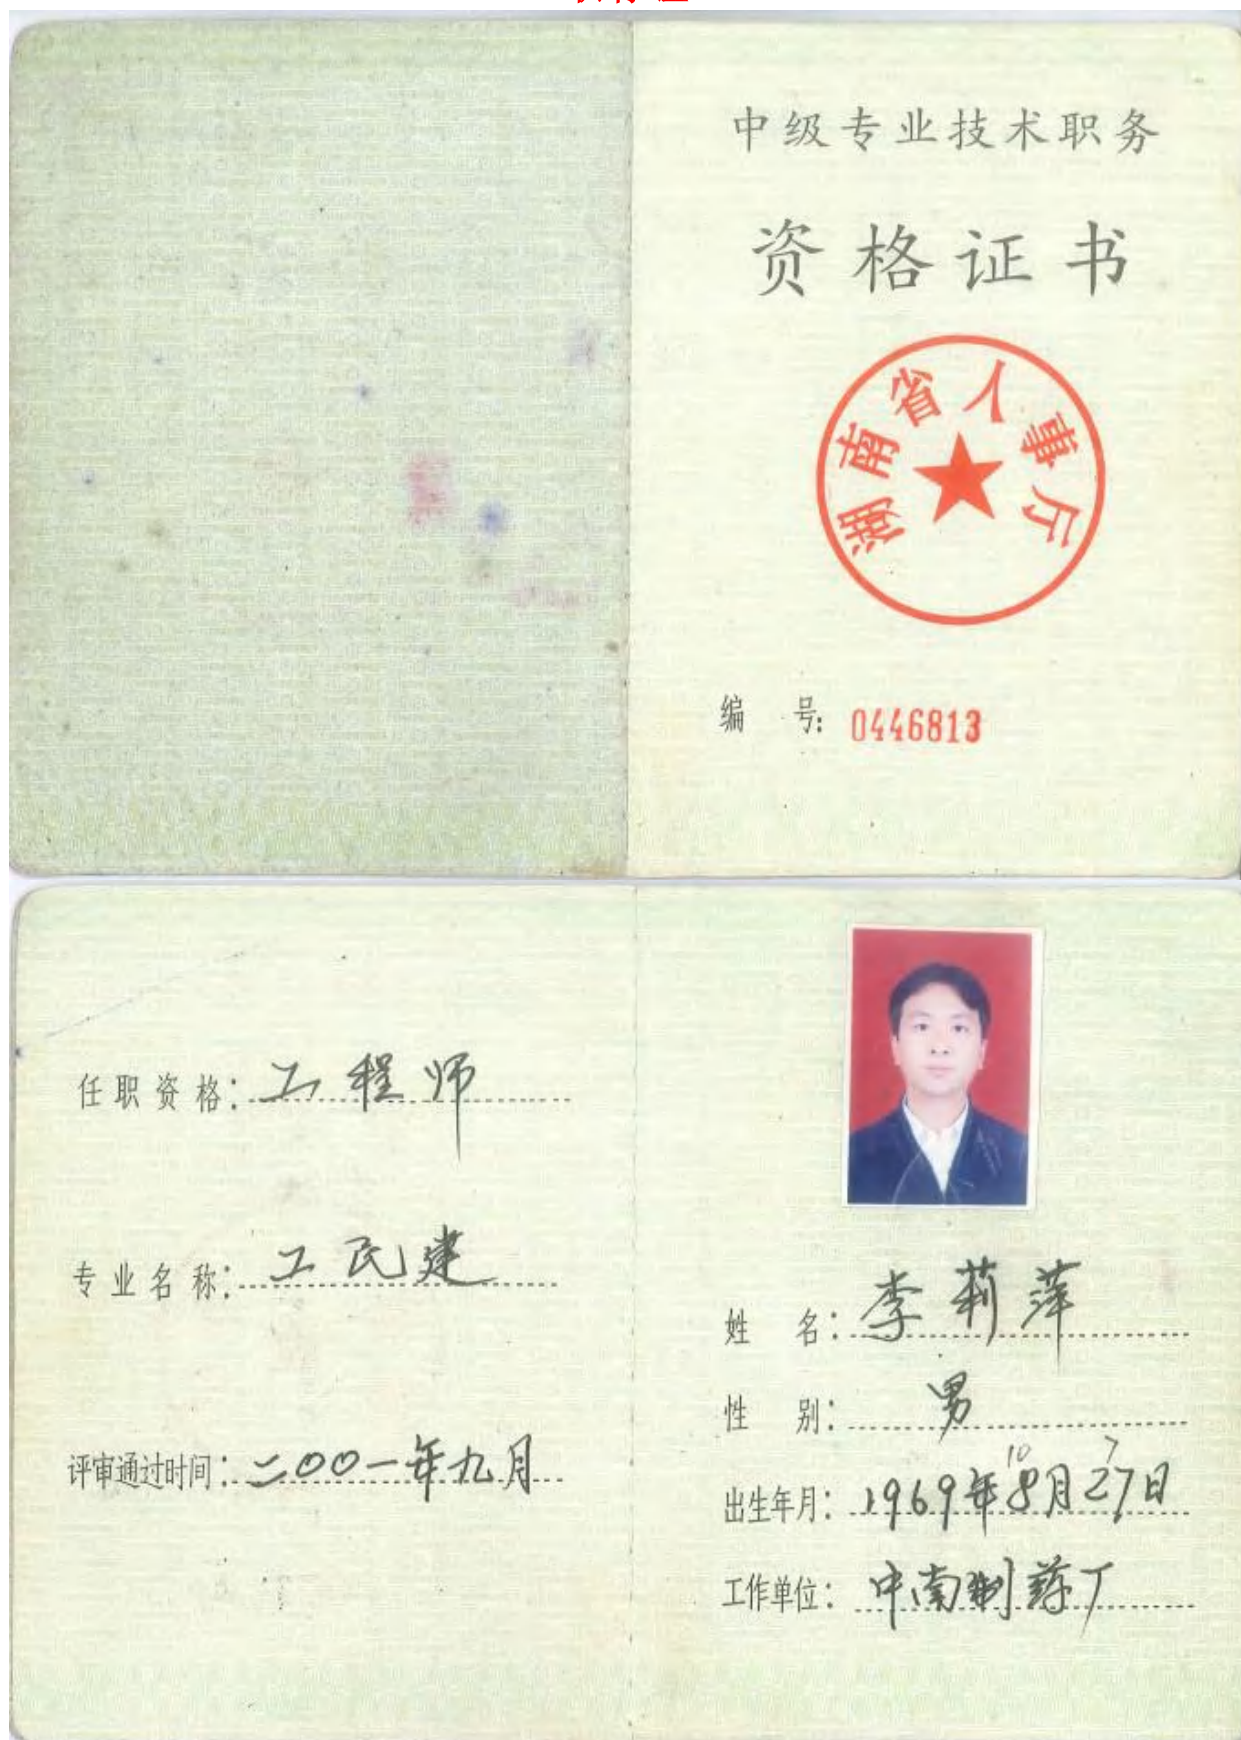 中级专业技术职务
资格证书
湖南省人事厅
编 号: 0446813
任职资格: 工程师
专业名称: 工民建
评审通过时间: 二〇〇一年九月
姓 名: 李莉萍
性 别: 男
10 7
出生年月: 1969年8月27日
工作单位: 中南制药厂